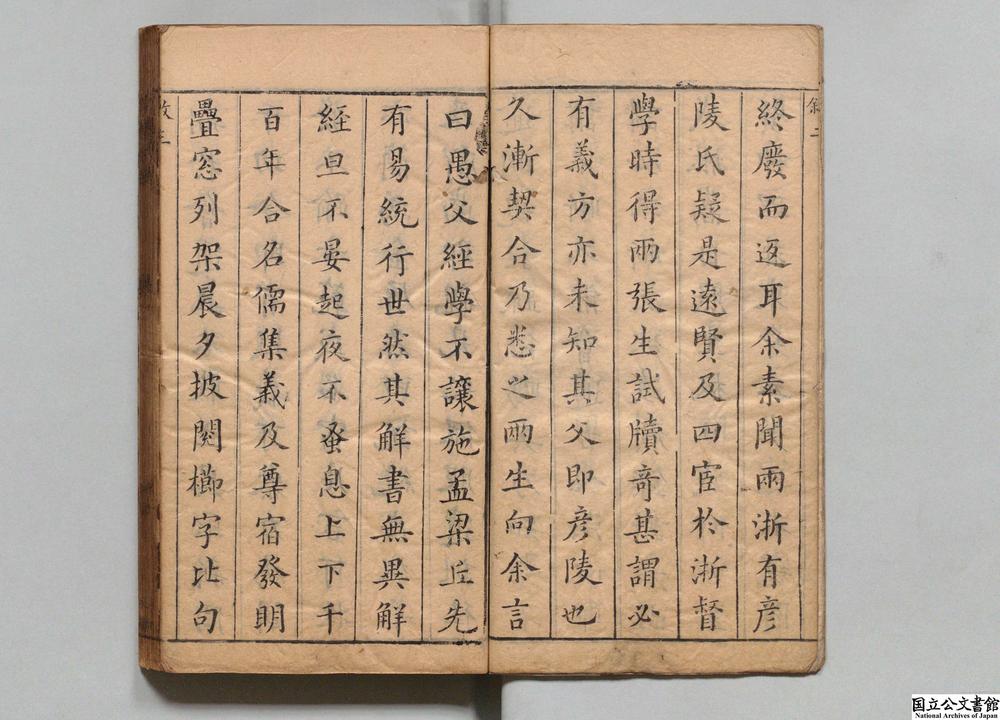 敘二
終廢而返耳余素聞兩浙有彦
陵氏疑是遠賢及四宦於浙督
學時得兩張生試牘奇甚謂必
有義方亦未知其父即彦陵也
久漸契合乃悉之兩生向余言
曰愚父經學不讓施孟梁丘先
有易統行世然其解書無異解
經旦不晏起夜不蚤息上下千
百年合名儒集義及尊宿發明
疊窓列架晨夕披閱櫛字比句
敘三
国立公文書館
National Archives of Japan